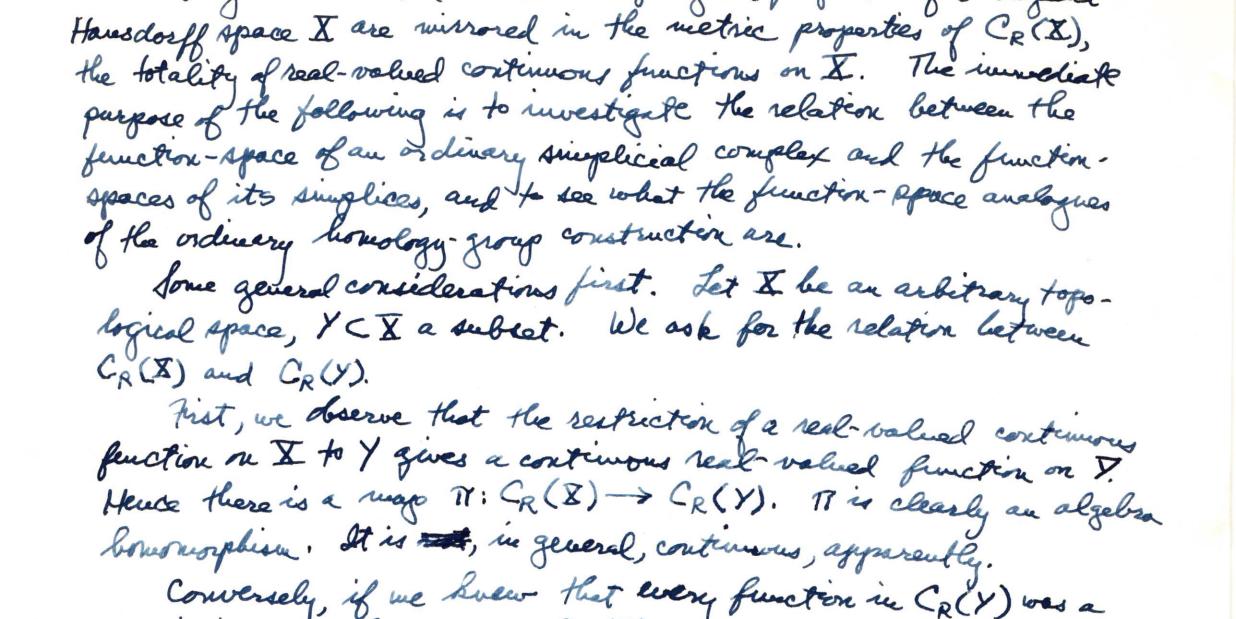 Hausdorff space X are mirrored in the metric properties of C_R(X),
the totality of real-valued continuous functions on X. The immediate
purpose of the following is to investigate the relation between the
function-space of an ordinary simplicial complex and the function-
spaces of its simplices, and to see what the function-space analogues
of the ordinary homology-group construction are.
Some general considerations first. Let X be an arbitrary topo-
logical space, Y ⊂ X a subset. We ask for the relation between
C_R(X) and C_R(Y).
First, we observe that the restriction of a real-valued continuous
function on X to Y gives a continuous real-valued function on Y.
Hence there is a map π: C_R(X) → C_R(Y). π is clearly an algebra
homomorphism. It is , in general, continuous, apparently.
Conversely, if we knew that every function in C_R(Y) was a